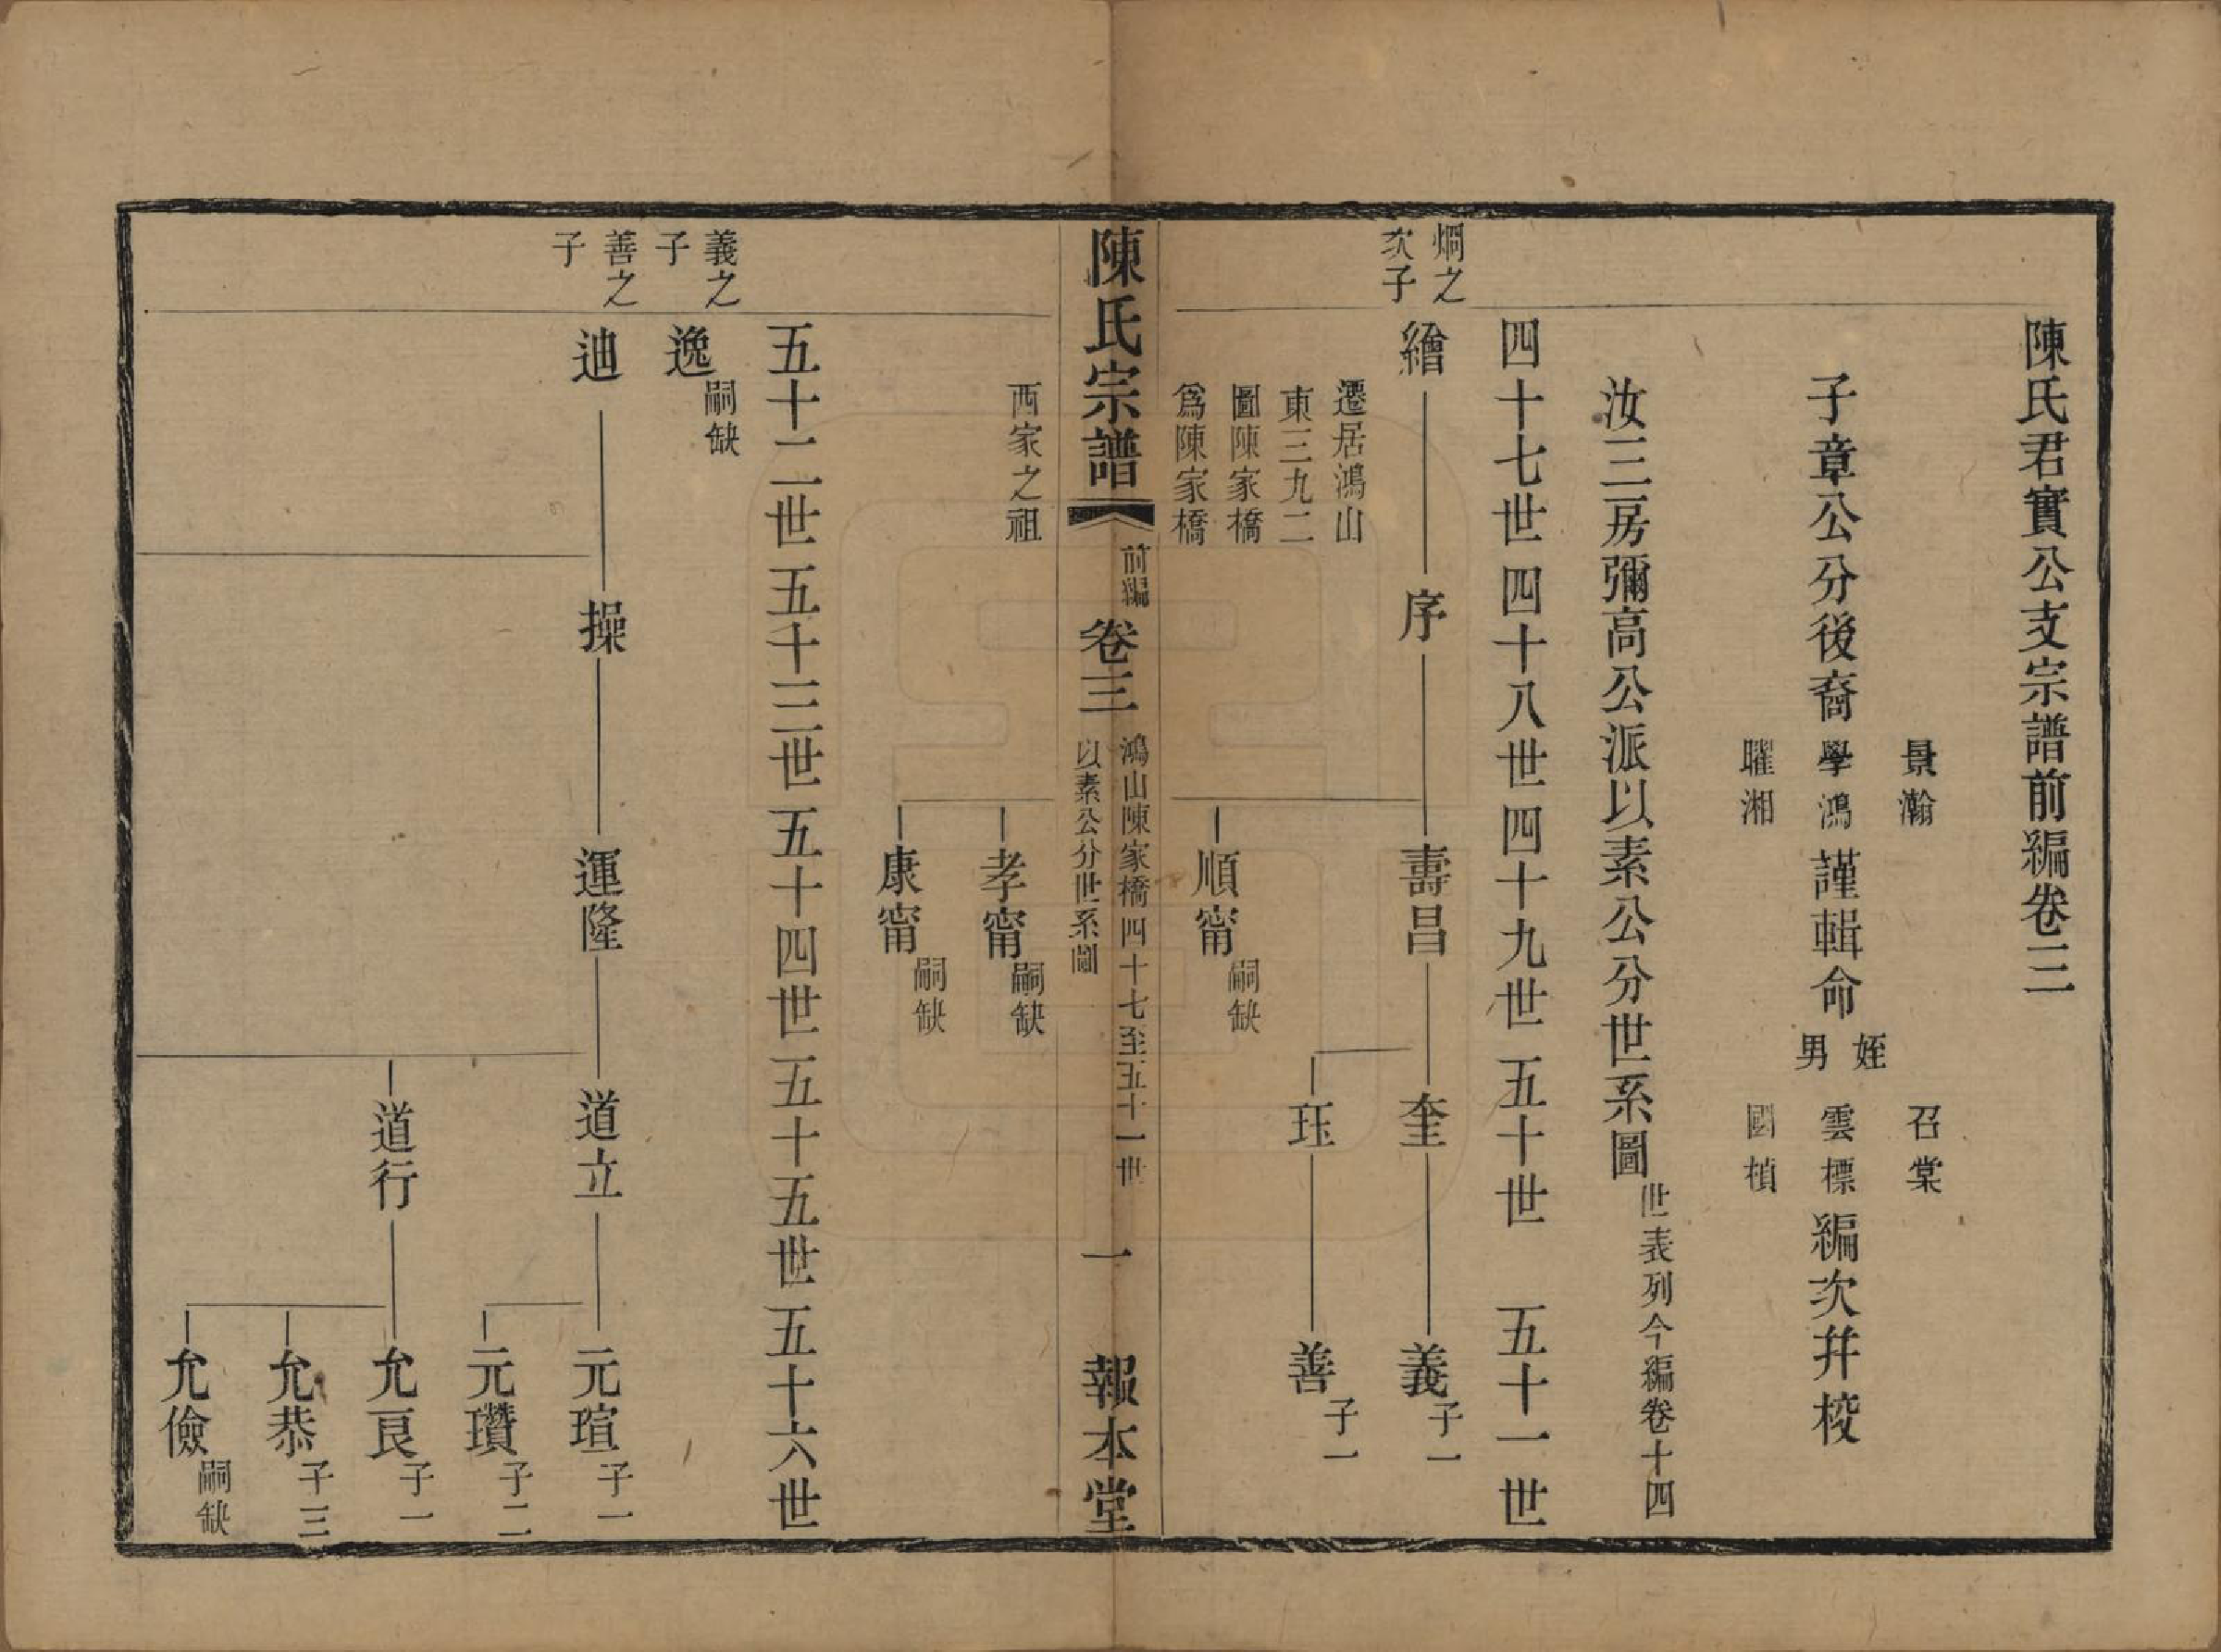 陳氏君實公支宗譜前編卷三
景瀚
子章公分後裔學鴻謹輯命
曜湘
姪
男
召棠
雲標編次幷校
國楨
汝三房彌高公派以素公分世系圖世表列今編卷十四
四十七世 四十八世 四十九世 五十世 五十一世
烱之
次子
繪 序 壽昌 奎 義子一
遷居鴻山
東三九二
圖陳家橋
爲陳家橋
珏 善子一
順甯嗣缺
陳氏宗譜 前編 卷三 鴻山陳家橋四十七至五十一世
以素公分世系圖
一 報本堂
西家之祖
孝甯嗣缺
康甯嗣缺
五十二世 五十三世 五十四世 五十五世 五十六世
義之
子
逸嗣缺
善之
子
迪 操 運隆 道立 元瑄子一
元瓚子二
道行 允良子一
允恭子三
允儉嗣缺